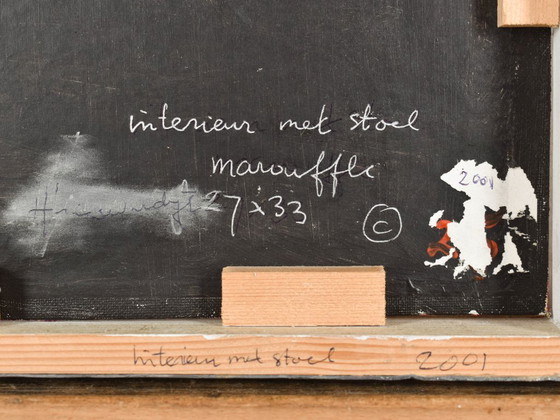 interieur met stoel
marouffle
27x33
©
2001
Interieur met stoel 2001